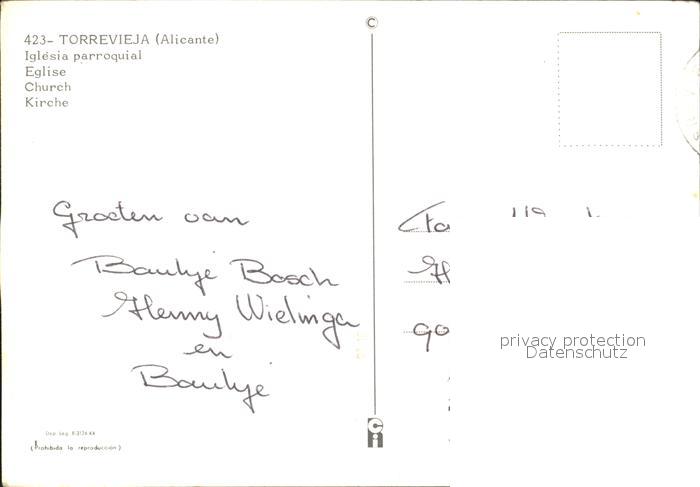 423- TORREVIEJA (Alicante)
Iglésia parroquial
Eglise
Church
Kirche
Groeten van
Baukje Bosch
Henny Wielinga
en
Baukje
(Prohibida la reproducción)
privacy protection
Datenschutz